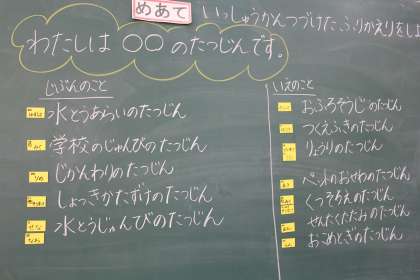 めあて
いっしゅうかんつづけた、ふりかえりをしよ
わたしは ○○ のたつじんです。
じぶんのこと
水とうあらいのたつじん
学校のじゅんびのたつじん
じかんわりのたつじん
しょっきかたずけのたつじん
水とうじゅんびのたつじん
いえのこと
おふろそうじのたつじん
つくえふきのたつじん
りょうりのたつじん
ペットのおせわのたつじん
くつそろえのたつじん
せんたくたたみのたつじん
おこめとぎのたつじん